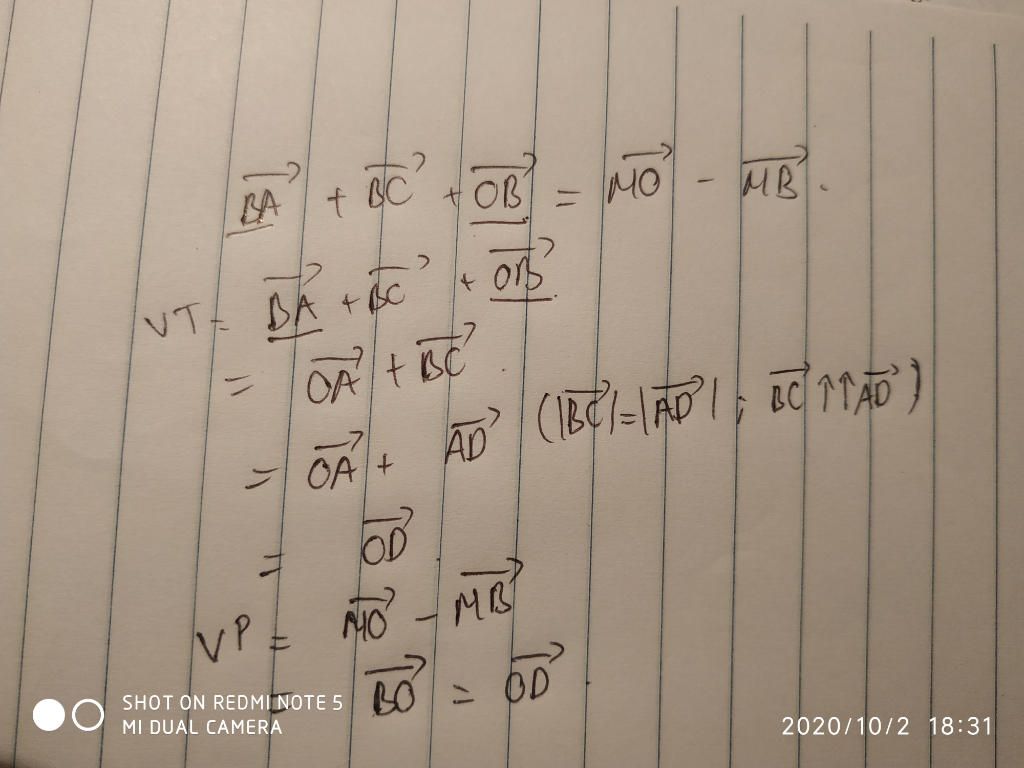 $\overrightarrow{BA} + \overrightarrow{BC} + \overrightarrow{OB} = \overrightarrow{MO} - \overrightarrow{MB}.$
VT = $\overrightarrow{BA} + \overrightarrow{BC} + \overrightarrow{OB}.$
$= \overrightarrow{OA} + \overrightarrow{BC}.$
$= \overrightarrow{OA} + \overrightarrow{AD}$ $(|\overrightarrow{BC}| = |\overrightarrow{AD}| ; \overrightarrow{BC} ↑↑ \overrightarrow{AD})$
$= \overrightarrow{OD}.$
VP = $\overrightarrow{MO} - \overrightarrow{MB}$
$= \overrightarrow{BO} = \overrightarrow{OD}.$
SHOT ON REDMI NOTE 5
MI DUAL CAMERA
2020/10/2 18:31